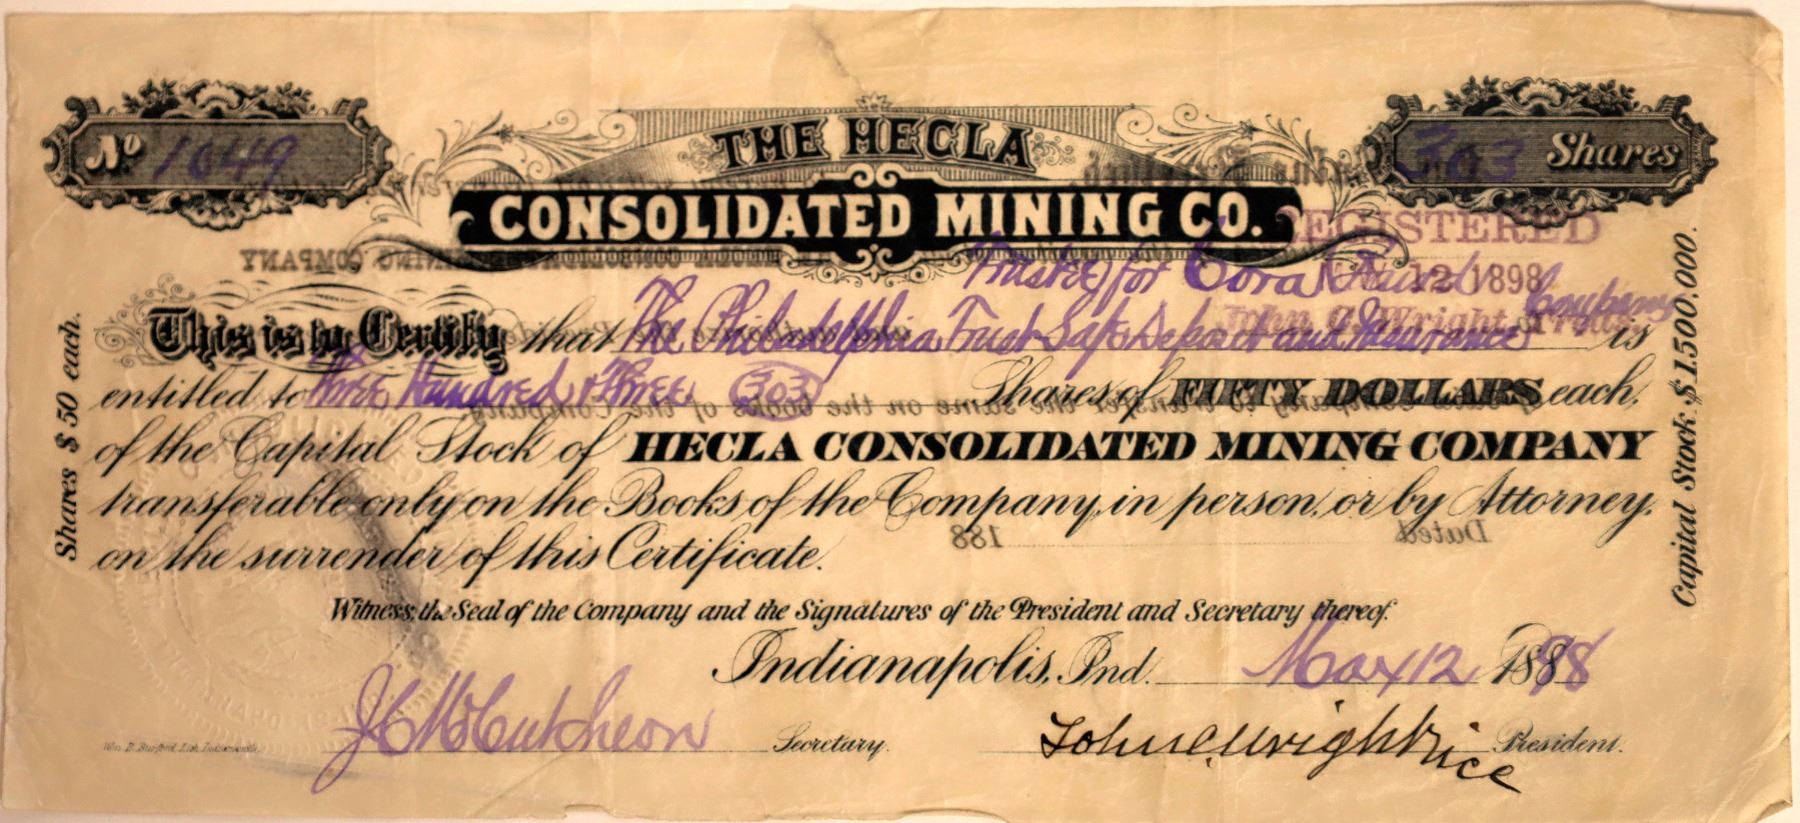 No 1649
303 Shares
THE HECLA
CONSOLIDATED MINING CO.
REGISTERED
12 1898
John C. Wright
Trustee for Cora
Company
This is to Certify that The Philadelphia Trust Safe Deposit and Insurance is
entitled to Three Hundred & Three (303) Shares of FIFTY DOLLARS each,
of the Capital Stock of HECLA CONSOLIDATED MINING COMPANY
transferable only on the Books of the Company, in person, or by Attorney,
on the surrender of this Certificate.
Witness, the Seal of the Company and the Signatures of the President and Secretary thereof.
Indianapolis, Ind. May 12 1898
J C McCutcheon Secretary.
John C. Wright Vice President.
Wm. B. Burford, Lith. Indianapolis.
Shares $50 each.
Capital Stock $1.500,000.
Dated 188